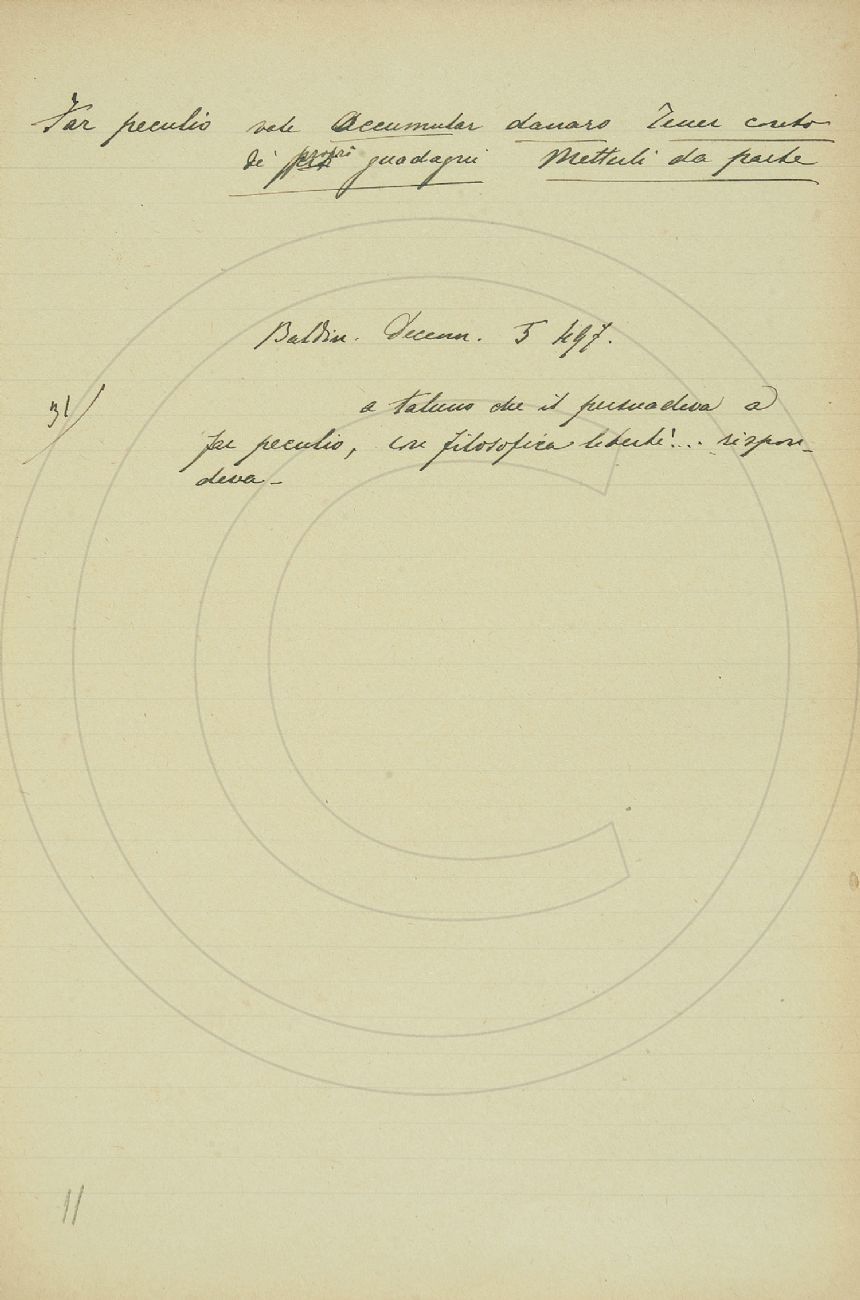 Far peculio vale Accumular danaro Tener conto
de' propri guadagni Metterli da parte
Baldin. Decenn. 5 497.
31/ a taluno che il persuadeva a
far peculio, con filosofica libertà... rispon-
deva-
11